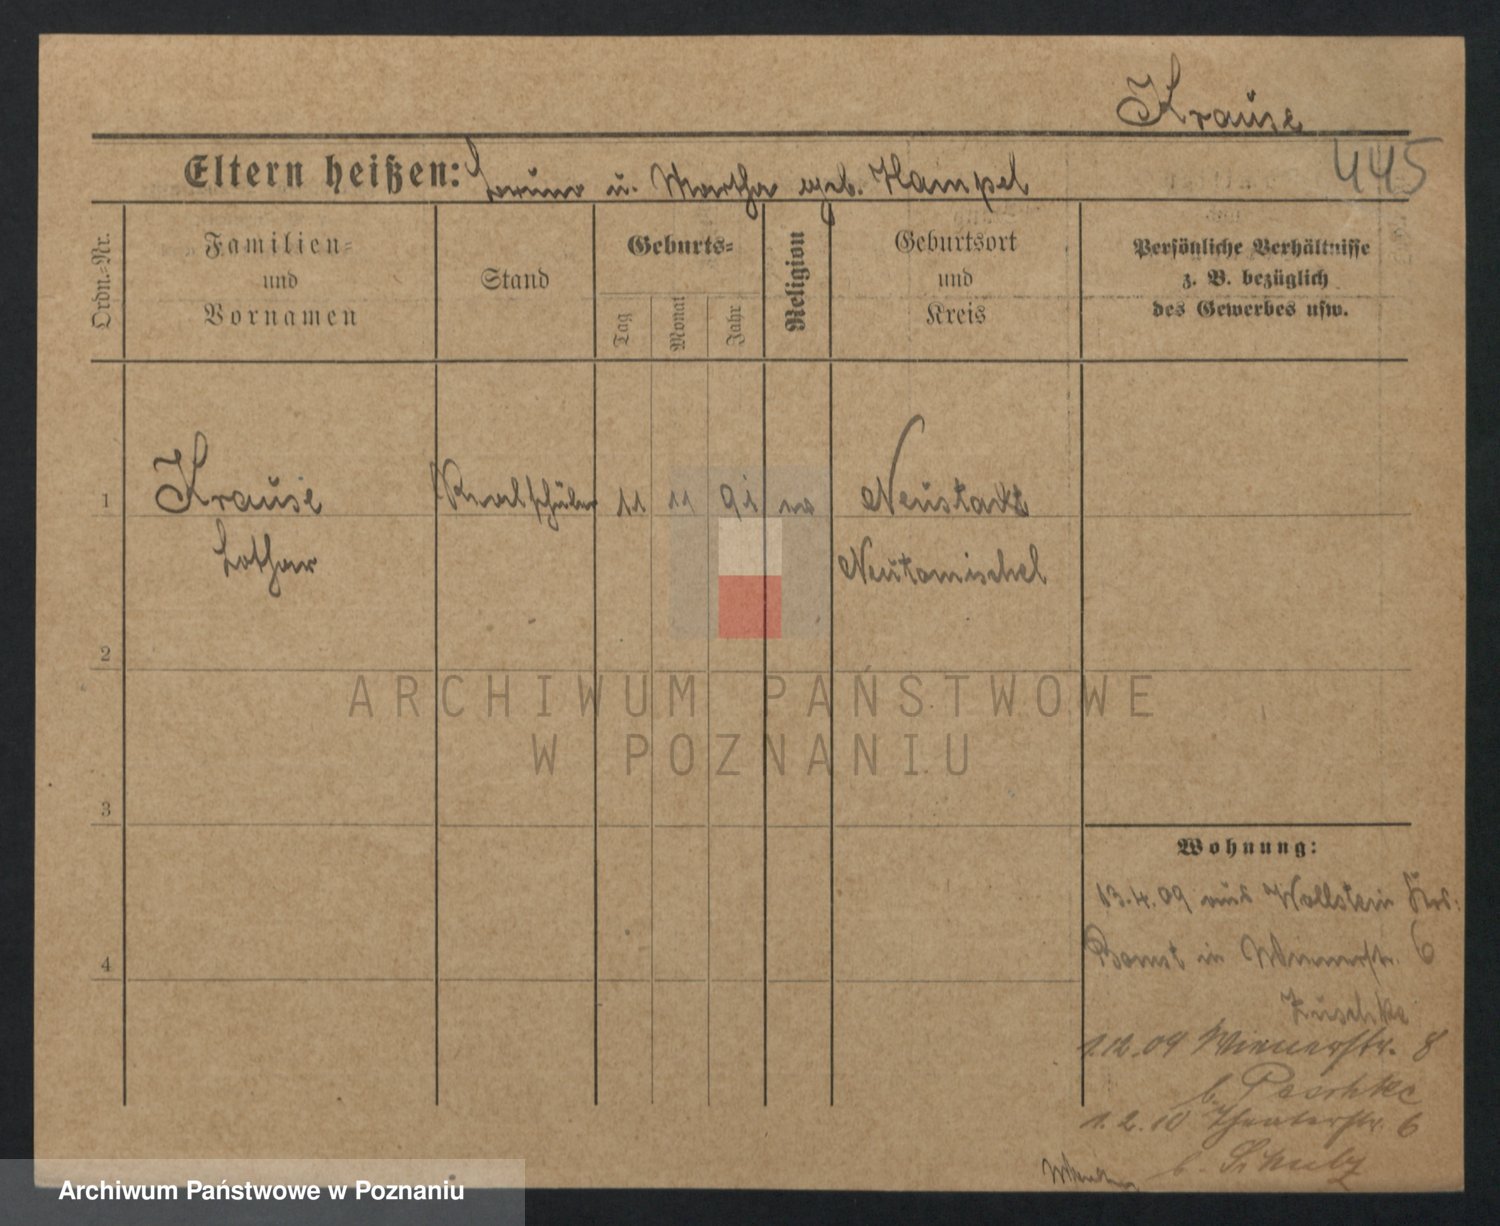 Krause
445
Eltern heißen: Bruno u. Martha geb. Hampel
Ordn.-Nr.
Familien-
und
Vornamen
Stand
Geburts-
Tag
Monat
Jahr
Religion
Geburtsort
und
Kreis
Persönliche Verhältnisse
z. B. bezüglich
des Gewerbes usw.
1 Krause Realschüler 11 11 91 ev Neustadt
Lothar Neutomischel
2
3
4
ARCHIWUM PAŃSTWOWE
W POZNANIU
Wohnung:
13.4.09 aus Wollstein Krs:
Bomst in Wienerstr. 6
Zuschke
1.12.09 Wienerstr. 8
b. Peschke
1.2.10 Theaterstr. 6
b. Schulz
Archiwum Państwowe w Poznaniu